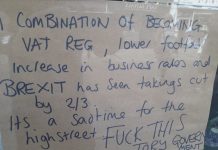 A COMBINATION OF BECOMING
VAT REG, lower footfall
Increase in business rates and
BREXIT has seen takings cut
by 2/3.
Its a sad time for the
highstreet FUCK THIS
TORY GOVERNMENT